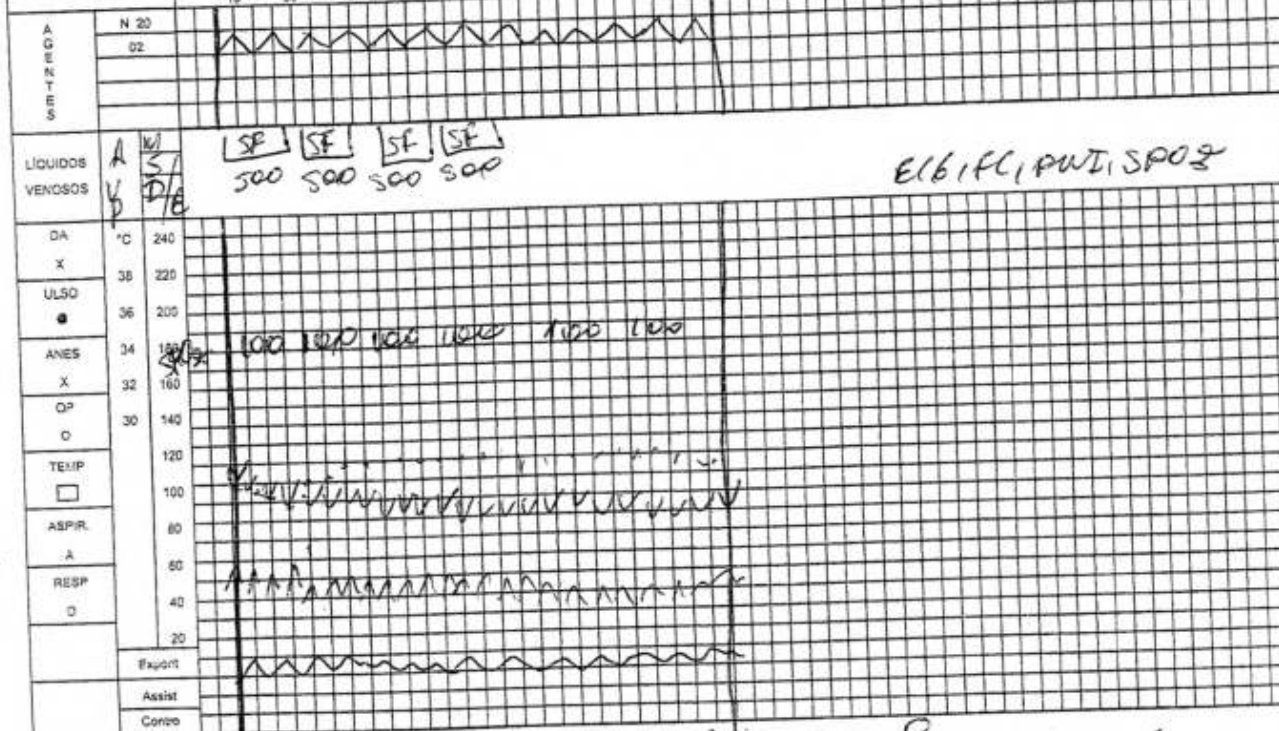 AGENTES
N 20
02
LÍQUIDOS VENOSOS
SF SF SF SF
500 500 500 500
DA
X
ULSO
ANES
X
OP
O
TEMP
ASPIR.
A
RESP
O
°C
38
36
34
32
30
240
220
200
180
160
140
120
100
80
60
40
20
100 100 100 100 100 100
Assist